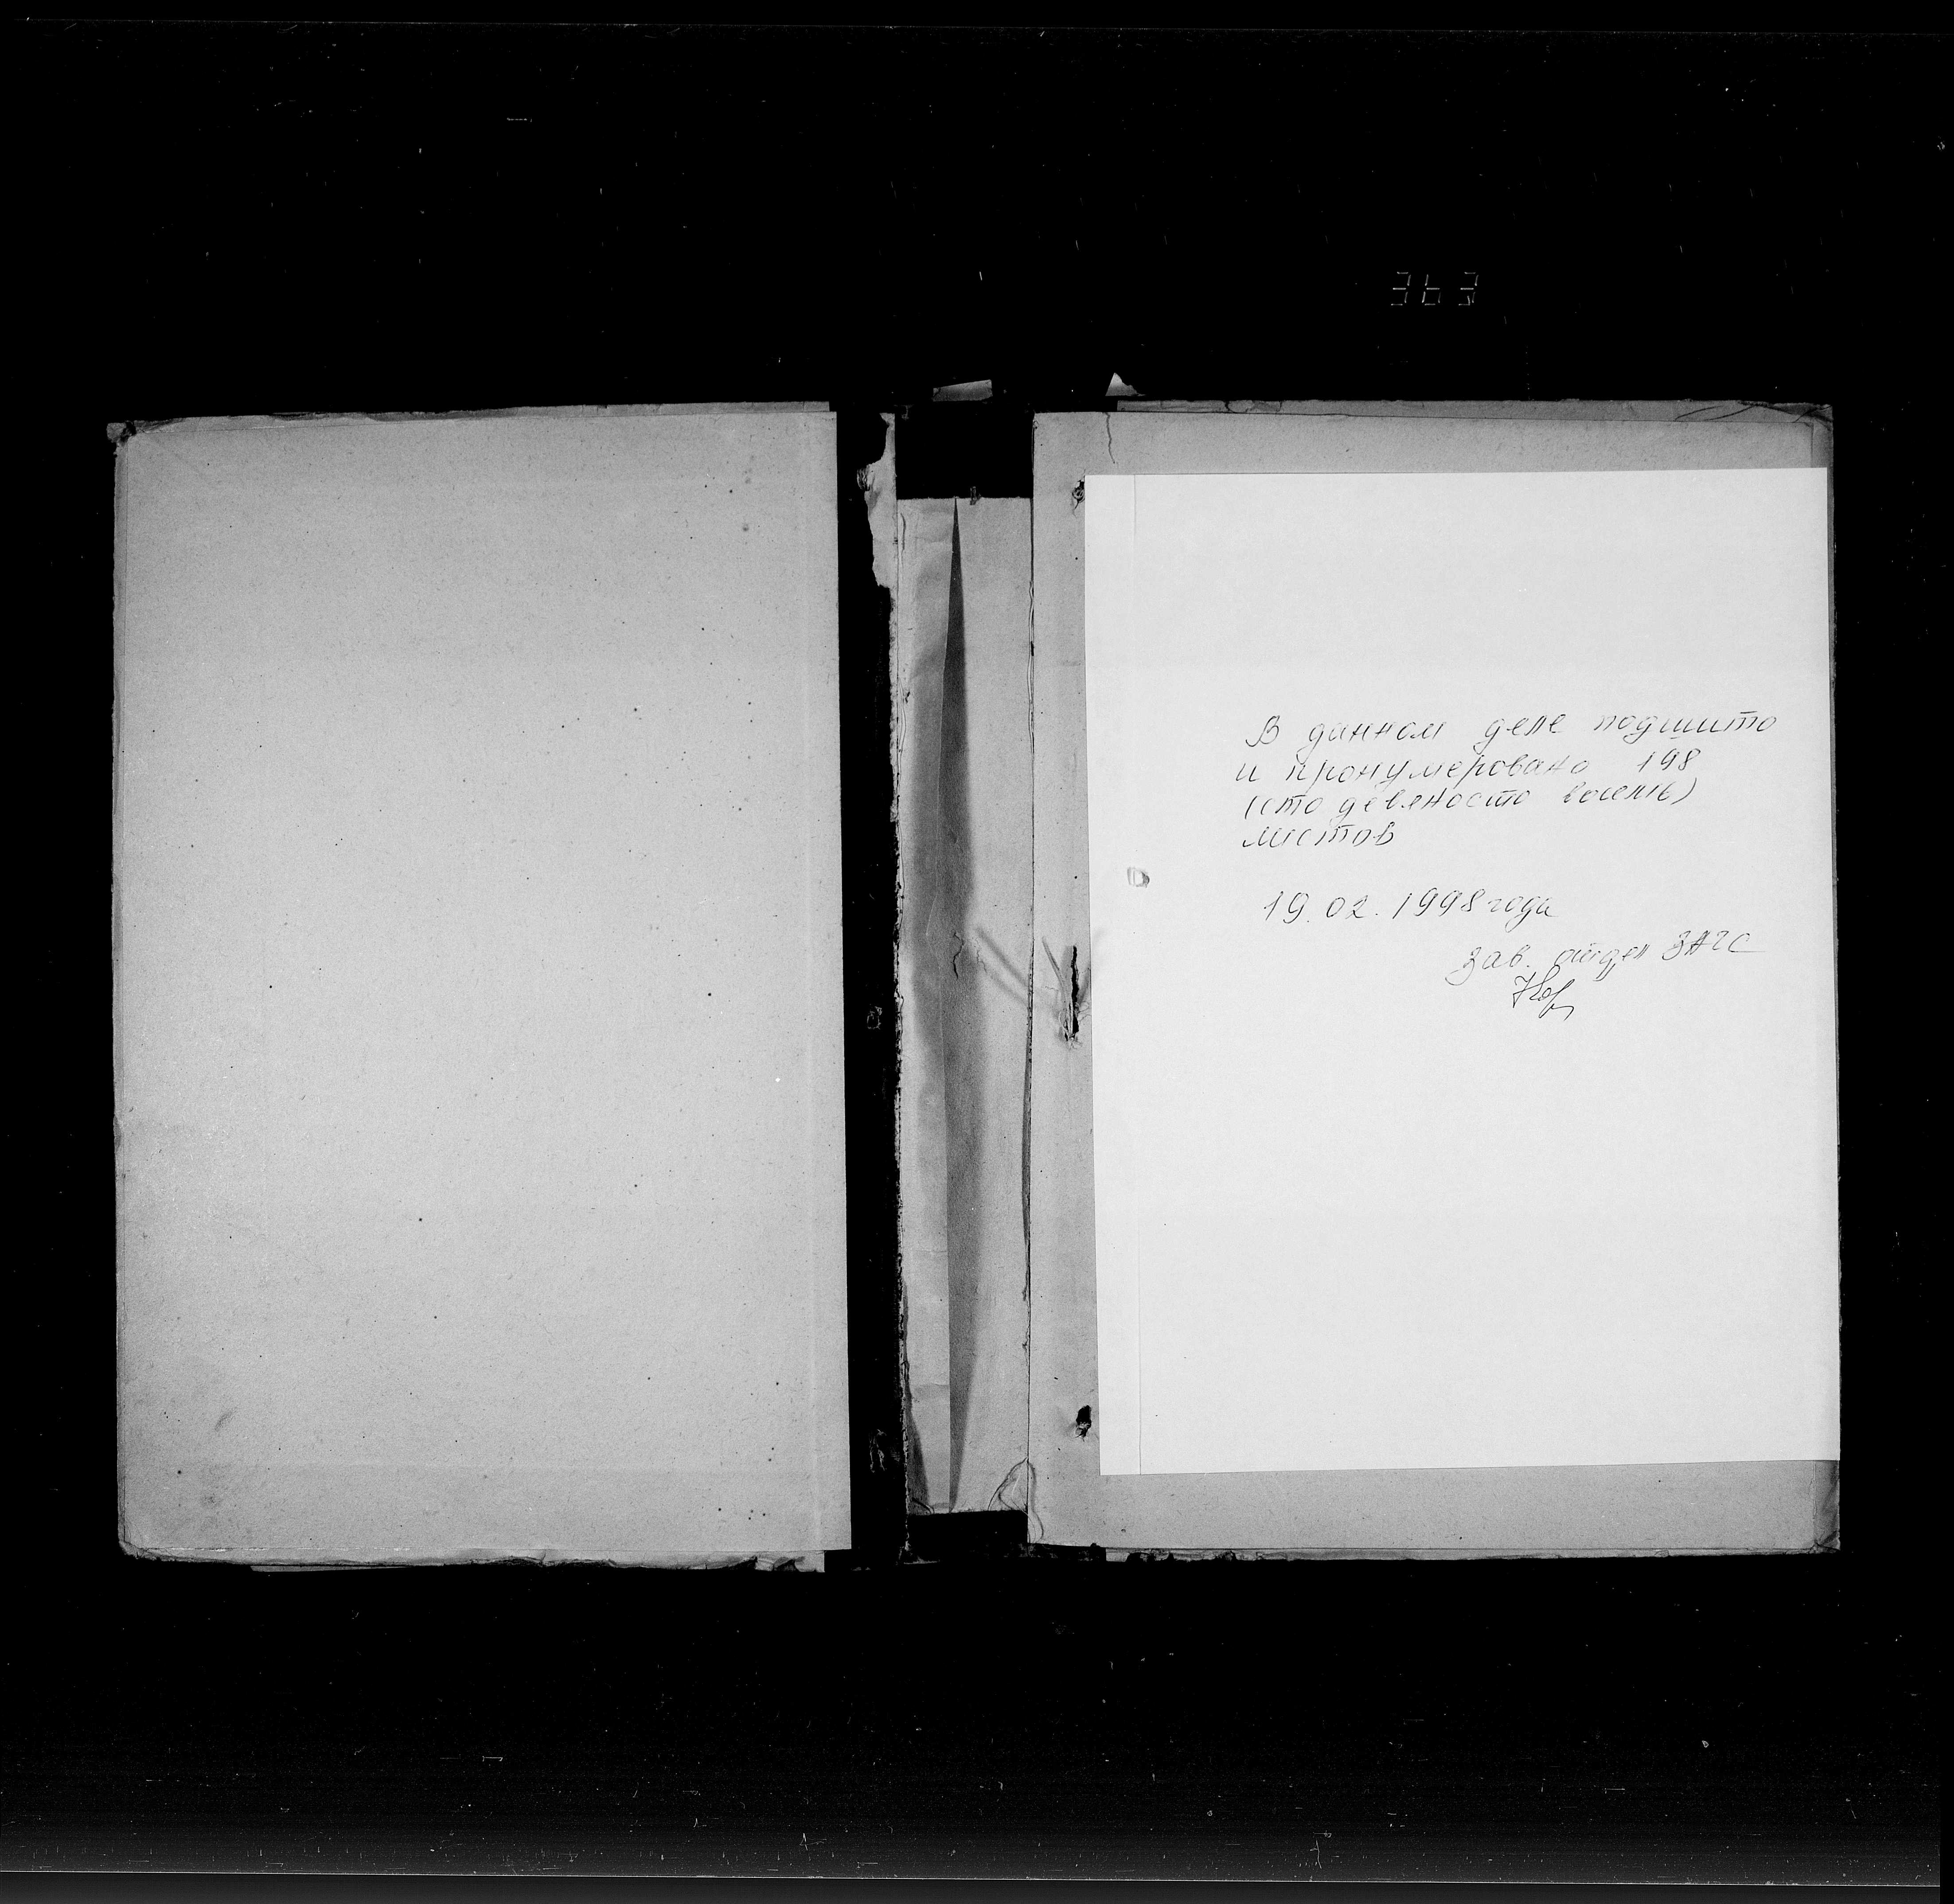 363
В данном деле подшито
и пронумеровано 198
(сто девяносто восемь)
листов
19.02.1998 года
Зав. отдел ЗАГС